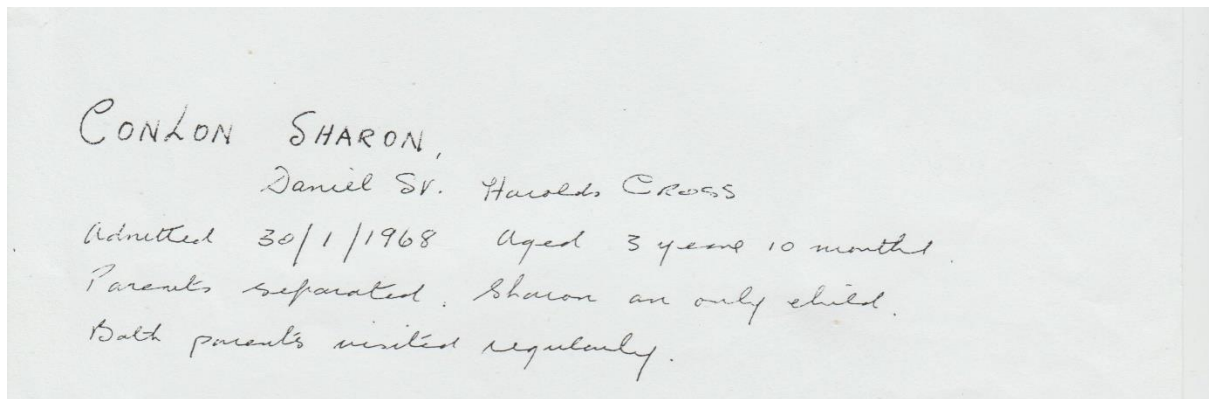 CONLON SHARON,
Daniel St. Harolds CROSS
Admitted 30/1/1968 Aged 3 years 10 months.
Parents separated. Sharon an only child.
Both parents visited regularly.